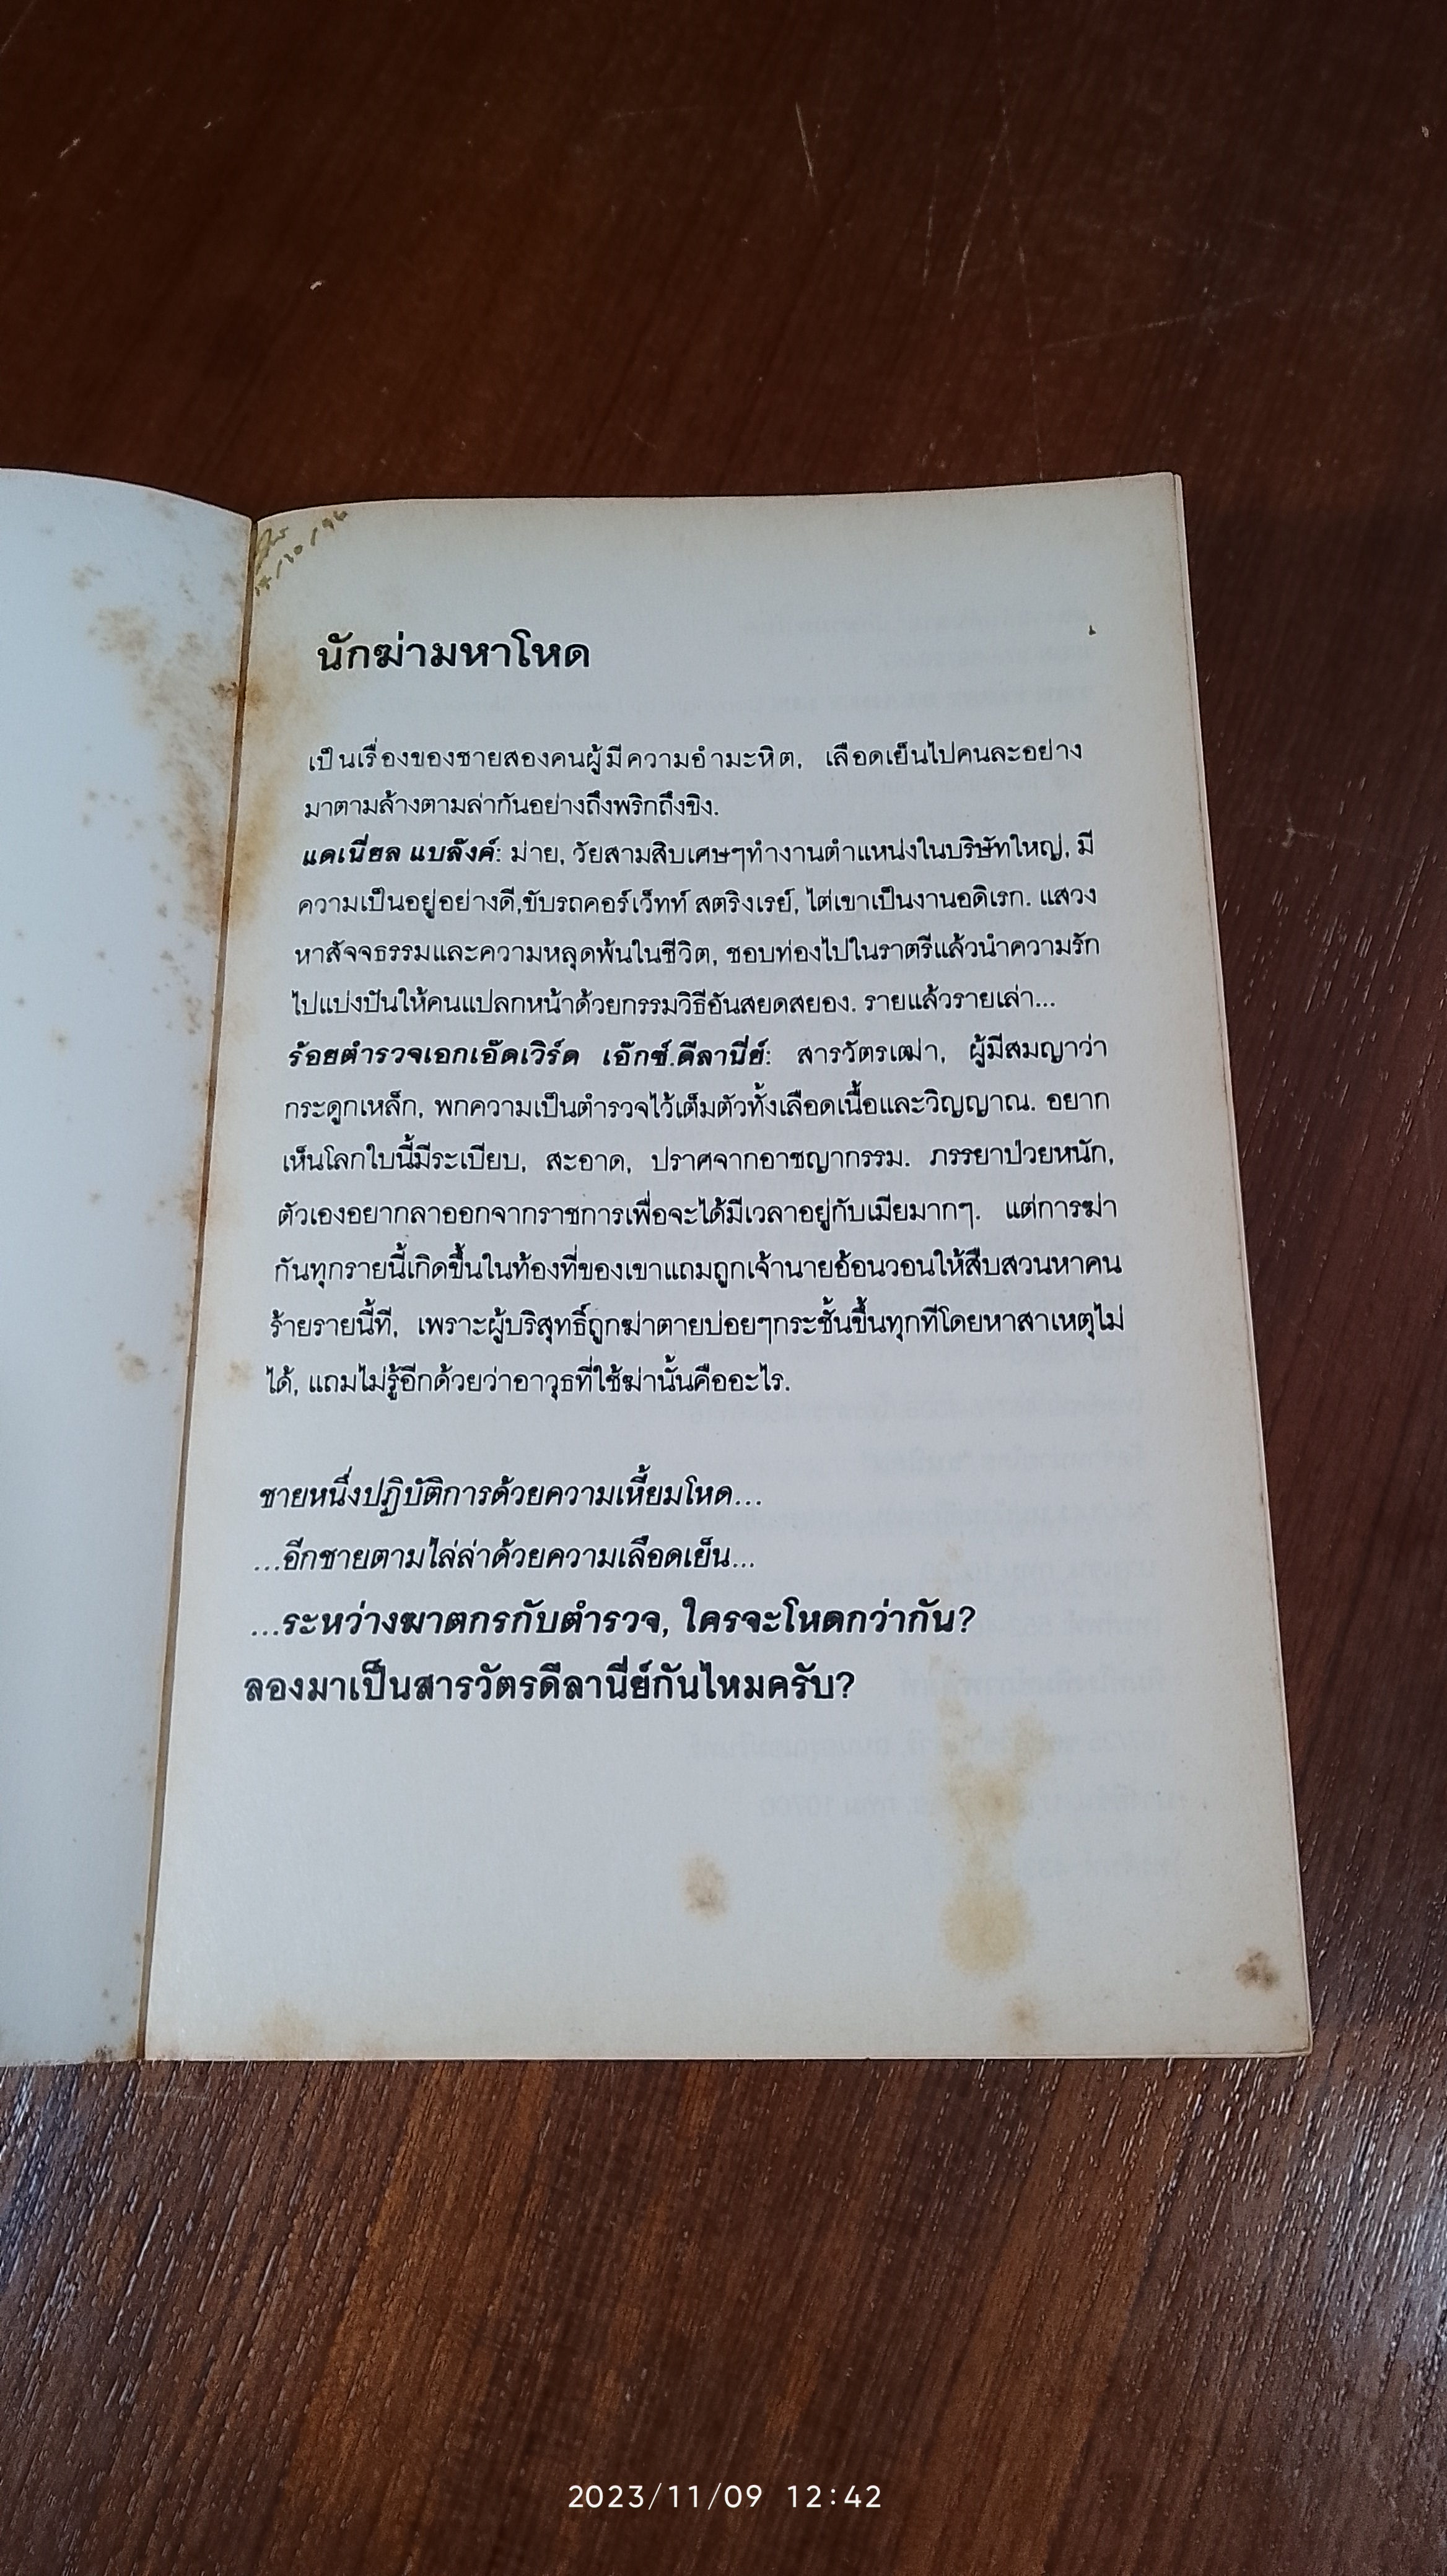 นักฆ่ามหาโหด
เป็นเรื่องของชายสองคนผู้มีความอำมะหิต, เลือดเย็นไปคนละอย่าง
มาตามล้างตามล่ากันอย่างถึงพริกถึงขิง.
แดเนี่ยล แบล๊งค์: ม่าย, วัยสามสิบเศษๆทำงานตำแหน่งในบริษัทใหญ่, มี
ความเป็นอยู่อย่างดี,ขับรถคอร์เว็ทท์ สตริงเรย์, ไต่เขาเป็นงานอดิเรก. แสวง
หาสัจจธรรมและความหลุดพ้นในชีวิต, ชอบท่องไปในราตรีแล้วนำความรัก
ไปแบ่งปันให้คนแปลกหน้าด้วยกรรมวิธีอันสยดสยอง. รายแล้วรายเล่า...
ร้อยตำรวจเอกเอ๊ดเวิร์ด เอ๊กซ์.ดีลานีย์: สารวัตรเฒ่า, ผู้มีสมญาว่า
กระดูกเหล็ก, พกความเป็นตำรวจไว้เต็มตัวทั้งเลือดเนื้อและวิญญาณ. อยาก
เห็นโลกใบนี้มีระเบียบ, สะอาด, ปราศจากอาชญากรรม. ภรรยาป่วยหนัก,
ตัวเองอยากลาออกจากราชการเพื่อจะได้มีเวลาอยู่กับเมียมากๆ. แต่การฆ่า
กันทุกรายนี้เกิดขึ้นในท้องที่ของเขาแถมถูกเจ้านายอ้อนวอนให้สืบสวนหาคน
ร้ายรายนี้ที, เพราะผู้บริสุทธิ์ถูกฆ่าตายบ่อยๆกระชั้นขึ้นทุกทีโดยหาสาเหตุไม่
ได้, แถมไม่รู้อีกด้วยว่าอาวุธที่ใช้ฆ่านั้นคืออะไร.
ชายหนึ่งปฏิบัติการด้วยความเหี้ยมโหด...
...อีกชายตามไล่ล่าด้วยความเลือดเย็น...
...ระหว่างฆาตกรกับตำรวจ, ใครจะโหดกว่ากัน?
ลองมาเป็นสารวัตรดีลานีย์กันไหมครับ?
2023/11/09 12:42